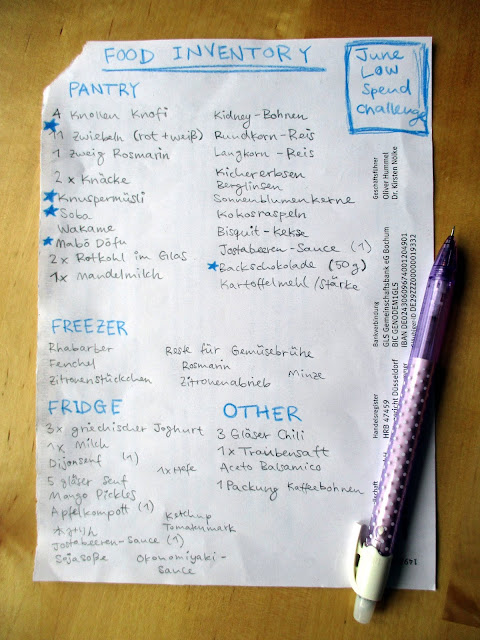 FOOD INVENTORY
June
LOW
Spend
Challenge
PANTRY
4 Knollen Knofi
11 Zwiebeln (rot + weiß)
1 Zweig Rosmarin
2 x Knäcke
Knuspermüsli
Soba
Wakame
Mabō Dōfu
2 x Rotkohl im Glas
1x Mandelmilch
Kidney-Bohnen
Rundkorn-Reis
Langkorn-Reis
Kichererbsen
Berglinsen
Sonnenblumenkerne
Kokosraspeln
Bisquit-Kekse
Jostabeeren-Sauce (1)
Backschokolade (50g)
Kartoffelmehl/stärke
FREEZER
Rhabarber
Fenchel
Zitronenstückchen
Reste für Gemüsebrühe
Rosmarin
Zitronenabrieb
Minze
FRIDGE
3x griechischer Joghurt
1x Milch
Dijonsenf (1)
5 gläser Senf
Mango Pickles
Apfelkompott (1)
みりん
Jostabeeren-Sauce (1)
Sojasoße
1x Hefe
Ketchup
Tomatenmark
Okonomiyaki-
Sauce
OTHER
3 Gläser Chili
1x Traubensaft
Aceto Balsamico
1 Packung Kaffeebohnen
Geschäftsführer
Oliver Hummel
Dr. Kirsten Nölke
Bankverbindung
GLS Gemeinschaftsbank eG Bochum
BIC GENODEM1GLS
IBAN DE02430609674001204901
DE29ZZZ00000019332
Handelsregister
Düsseldorf
HRB 47459